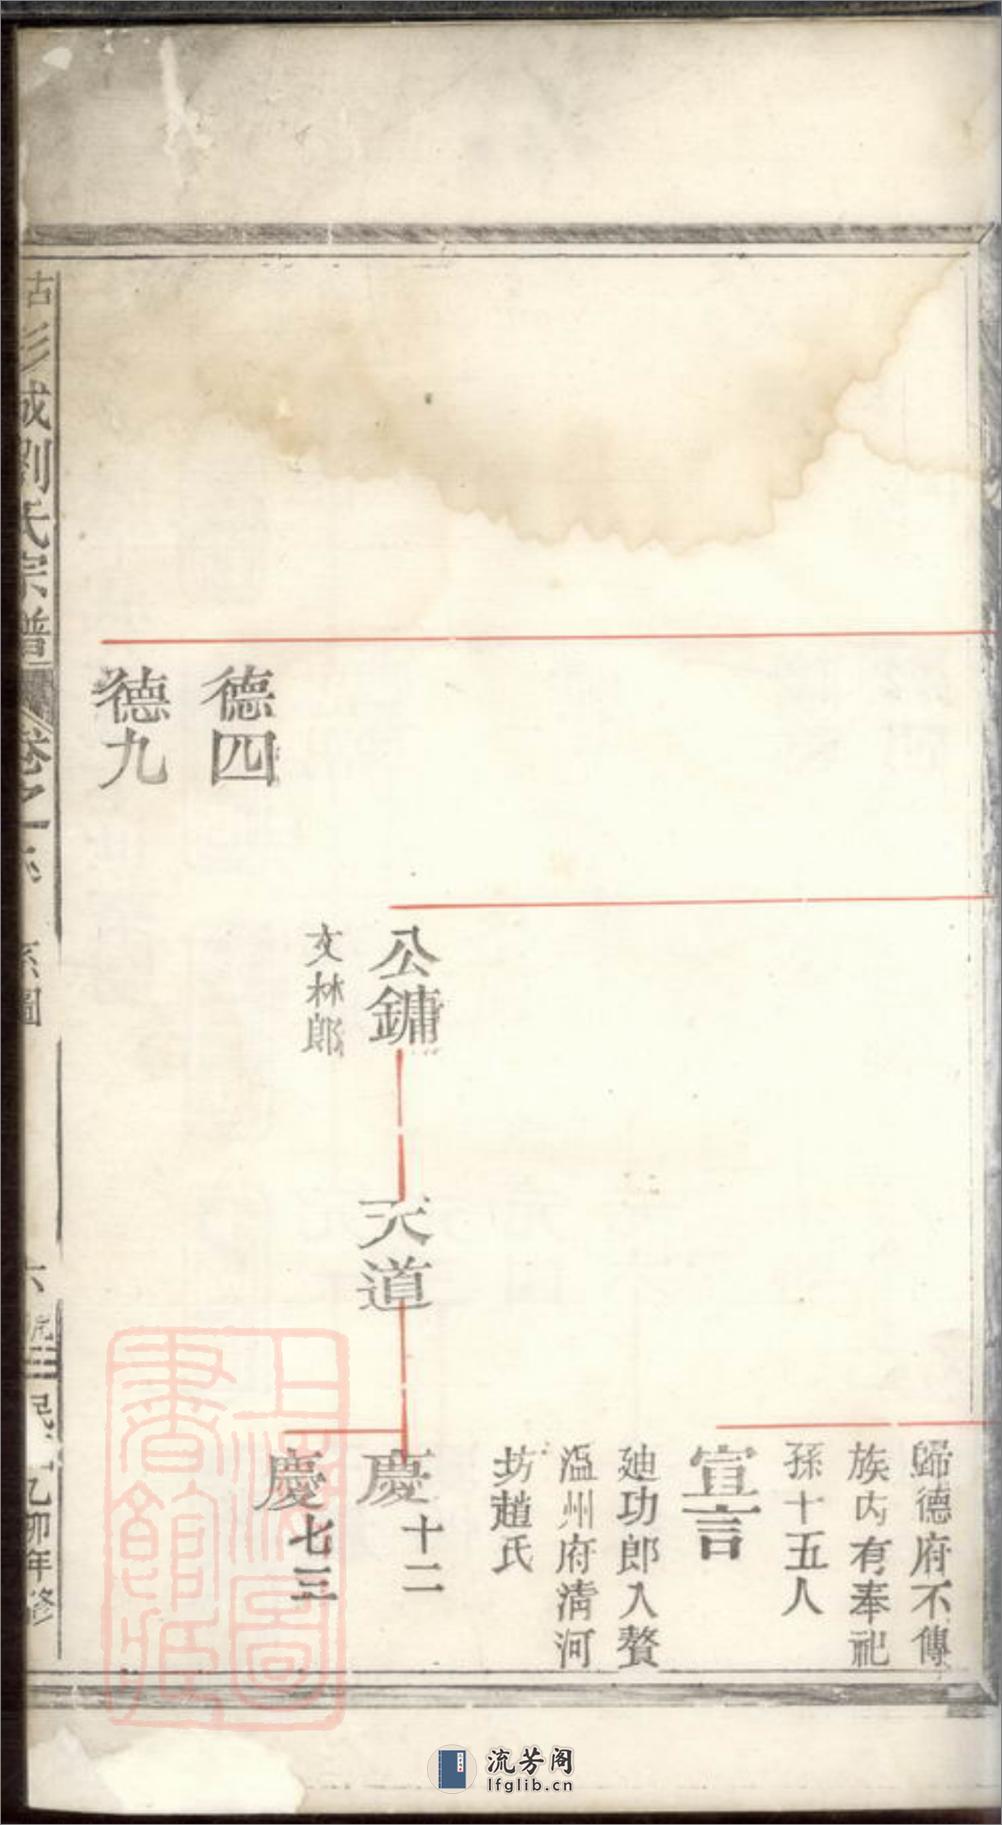 歸德府不傳
族内有奉祀
孫十五人
宣言
廸功郎入贅
溫州府清河
坊趙氏
公鏞
文林郎
天道
慶十二
慶七三
德四
德九
古彭城劉氏宗譜
卷之一
系圖
六
民
乙卯年修
上海圖書館藏
流芳阁
lfglib.cn